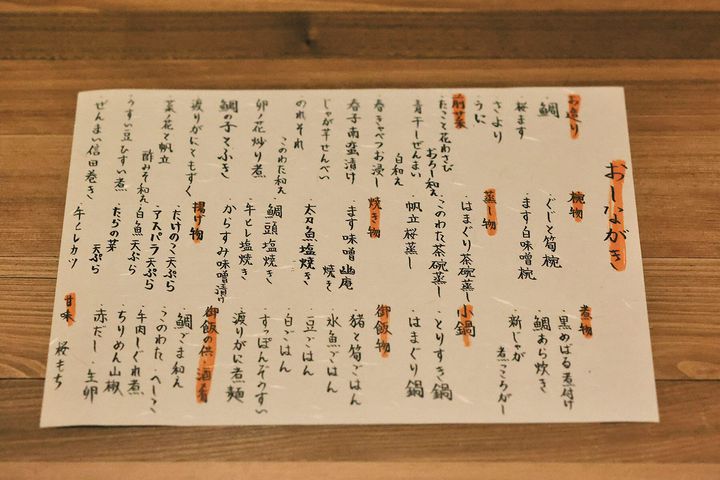 おしながき
お造り
鯛
桜ます
さより
うに
前菜
・たこと花わさび
おろし和え
・青干しぜんまい
白和え
・春きゃべつお浸し
・春子南蛮漬け
・じゃが芋せんべい
・のれそれ
このわた和え
・卯ノ花炒り煮
・鯛の子てふき
・渡りがにともずく
・菜ノ花と帆立
酢みそ和え
・うすい豆ひすい煮
・ぜんまい信田巻き
椀物
・ぐじと筍椀
・ます白味噌椀
蒸し物
・はまぐり茶碗蒸し
・このわた茶碗蒸し
・帆立桜蒸し
焼き物
・ます味噌幽庵
焼き
・太刀魚塩焼き
・鯛頭塩焼き
・牛ヒレ塩焼き
・からすみ味噌漬け
揚げ物
・たけのこ天ぷら
・アスパラ天ぷら
・白魚天ぷら
・たらの芽
天ぷら
・牛ヒレカツ
煮物
・黒めばる煮付け
・鯛あら炊き
・新じゃが
煮っころがし
小鍋
・とりすき鍋
・はまぐり鍋
御飯物
・猪と筍ごはん
・氷魚ごはん
・豆ごはん
・白ごはん
・すっぽんぞうすい
・渡りがに煮麺
御飯の供・酒肴
・鯛ごま和え
・このわた・へしこ
・牛肉しぐれ煮
・ちりめん山椒
・赤だし・生卵
甘味
桜もち